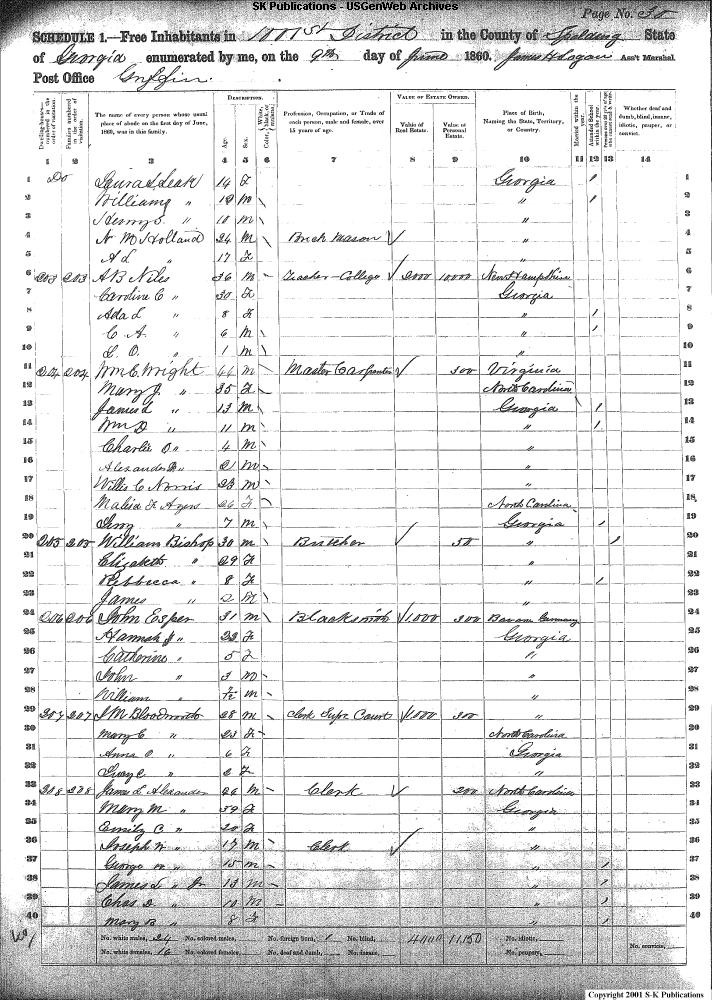 SK Publications - USGenWeb Archives
Page No. 30
SCHEDULE 1.—Free Inhabitants in 1001st District in the County of Spalding State
of Georgia enumerated by me, on the 9th day of June 1860. James H Logan Ass't Marshal.
Post Office Griffin
DESCRIPTION. VALUE OF ESTATE OWNED.
Dwelling-houses—numbered in the order of visitation. Families numbered in the order of visitation. The name of every person whose usual place of abode on the first day of June, 1860, was in this family. Age. Sex. Color, White, black, or mulatto. Profession, Occupation, or Trade of each person, male and female, over 15 years of age. Value of Real Estate. Value of Personal Estate. Place of Birth, Naming the State, Territory, or Country. Married within the year. Attended School within the year. Whether deaf and dumb, blind, insane, idiotic, pauper, or convict.
1 2 3 4 5 6 7 8 9 10 11 12 13 14
1 Do Laura L Leak 14 F Georgia / 1
2 William G " 12 M " / 2
3 Henry S. " 10 M " 3
4 N M Holland 24 M Brick Mason " 4
5 A L " 17 F " 5
6 203 203 A B Niles 36 M Teacher-College 2000 10000 New Hampshire 6
7 Caroline C " 30 F Georgia 7
8 Ada L " 8 F " / 8
9 C A " 6 M " / 9
10 L. O. " 1 M " 10
11 204 204 Wm C Wright 44 M Master Carpenter 300 Virginia 11
12 Mary J. " 35 F North Carolina 12
13 James L " 13 M Georgia / 13
14 Wm D " 11 M " / 14
15 Charlie D " 4 M " 15
16 Alexander " 21 M " 16
17 Willis C Norris 23 M " 17
18 Malisa F Ayers 26 F North Carolina 18
19 " 7 M Georgia / 19
20 205 205 William Bishop 30 M Butcher 50 " / 20
21 Elizabeth " 29 F " 21
22 Rebbecca " 8 F " / 22
23 James " 2 M " 23
24 206 206 John Esper 31 M Blacksmith 1,000 300 Bavaria Germany 24
25 Hannah J " 23 F Georgia 25
26 Catherine " 5 F " 26
27 John " 3 M " 27
28 William " M " 28
29 207 207 J M Bloodworth 28 M Clerk Supr Court 1,000 300 " 29
30 Mary C " 23 F North Carolina 30
31 Anna O " 6 F Georgia 31
32 " 2 F " 32
33 208 208 James L Alexander 26 M Clerk 200 North Carolina 33
34 Mary M " 39 F Georgia 34
35 Emily C " 20 F " 35
36 Joseph W " 17 M Clerk " 36
37 George W " 15 M " / 37
38 James L " Jr 13 M " / 38
39 Chas D " 10 M " / 39
40 Mary B " 8 F " / 40
No. white males, 24 No. colored males, No. foreign born, 1 No. blind, 4000 11,150 No. idiotic,
No. white females, 16 No. colored females, No. deaf and dumb, No. insane, No. paupers, No. convicts,
Copyright 2001 S-K Publications